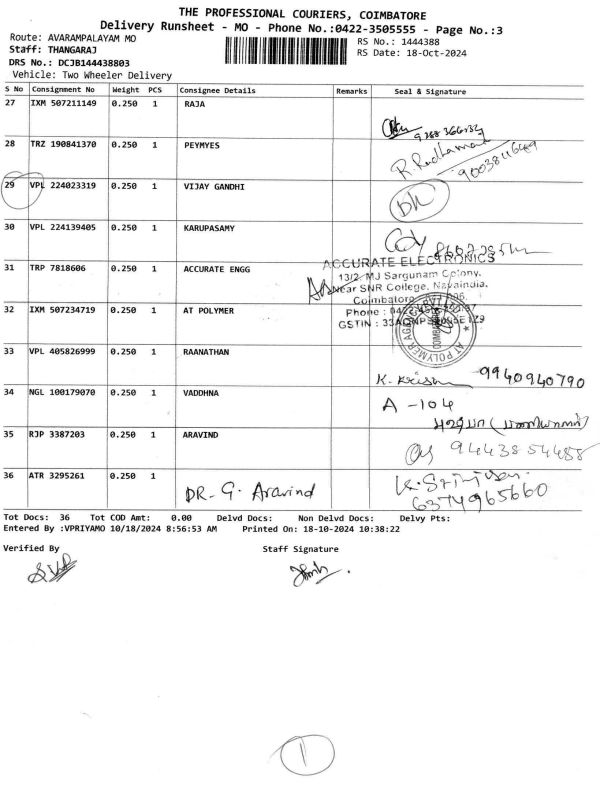 THE PROFESSIONAL COURIERS, COIMBATORE
Delivery Runsheet - MO - Phone No.:0422-3505555 - Page No.:3
Route: AVARAMPALAYAM MO
RS No.: 1444388
Staff: THANGARAJ
RS Date: 18-Oct-2024
DRS No.: DCJB144438803
Vehicle: Two Wheeler Delivery
S No Consignment No Weight PCS Consignee Details Remarks Seal & Signature
27 IXM 507211149 0.250 1 RAJA
28 TRZ 190841370 0.250 1 PEYMYES
29 VPL 224023319 0.250 1 VIJAY GANDHI
30 VPL 224139405 0.250 1 KARUPASAMY
ACCURATE ELECTRONICS
31 TRP 7818606 0.250 1 ACCURATE ENGG
13/2, MJ Sargunam Colony,
Near SNR College, Navaindia,
Coimbatore
32 IXM 507234719 0.250 1 AT POLYMER
Phone :
GSTIN :
AT POLYMER
33 VPL 405826999 0.250 1 RAANATHAN
K. Krish 9940940790
34 NGL 100179070 0.250 1 VADDHNA
A - 104
35 RJP 3387203 0.250 1 ARAVIND
9443854488
36 ATR 3295261 0.250 1
DR. G. Aravind
6374965660
Tot Docs: 36 Tot COD Amt: 0.00 Delvd Docs: Non Delvd Docs: Delvy Pts:
Entered By :VPRIYAMO 10/18/2024 8:56:53 AM Printed On: 18-10-2024 10:38:22
Verified By Staff Signature
1